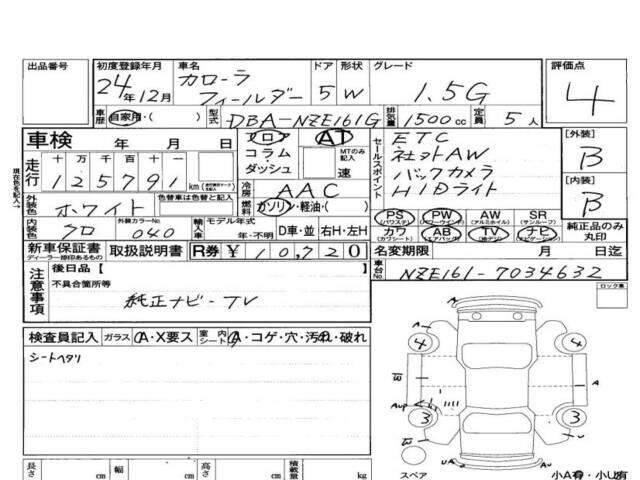 出品番号
初度登録年月
24年12月
車名
カローラ
フィールダー
ドア 形状
5 W
グレード
1.5G
評価点
4
車歴 自家用・( )
型式 DBA-NZE161G
排気量 1500cc
定員 5人
車検 年 月 日
フロア
コラム
ダッシュ
AT
MTのみ記入
速
セールスポイント
ETC
社外AW
バックカメラ
HIDライト
[外装]
B
[内装]
B
現在色を記入→
走行
十 万 千 百 十 一
125791 km
冷房 AAC
燃料 ガソリン・軽油・( )
外装色 ホワイト
色替車は色替と記入
内装色 クロ
外装カラーNo.
040
輸入車 モデル年式
年・不明
D車・並 右H・左H
PS (パワステ)
PW (パワーウインドウ)
AW (アルミホイル)
SR (サンルーフ)
カワ (カワシート)
AB (エアバック)
TV
ナビ (ナビゲーション)
純正品のみ
丸印
新車保証書
ディーラー捺印あるもの
取扱説明書
R券 ¥10,720
名変期限 月 日迄
車台No. NZE161-7034632
注意事項
後日品【 】
不具合箇所等
純正ナビ-TV
ロック集
検査員記入 ガラス A・X要ス
室内シート A・コゲ・穴・汚れ・破れ
シートヘタリ
A
4
4
W
A
A
3
3
U
UA
スペア
小A有・小U有
長さ cm
幅 cm
高さ cm
積載量 kg